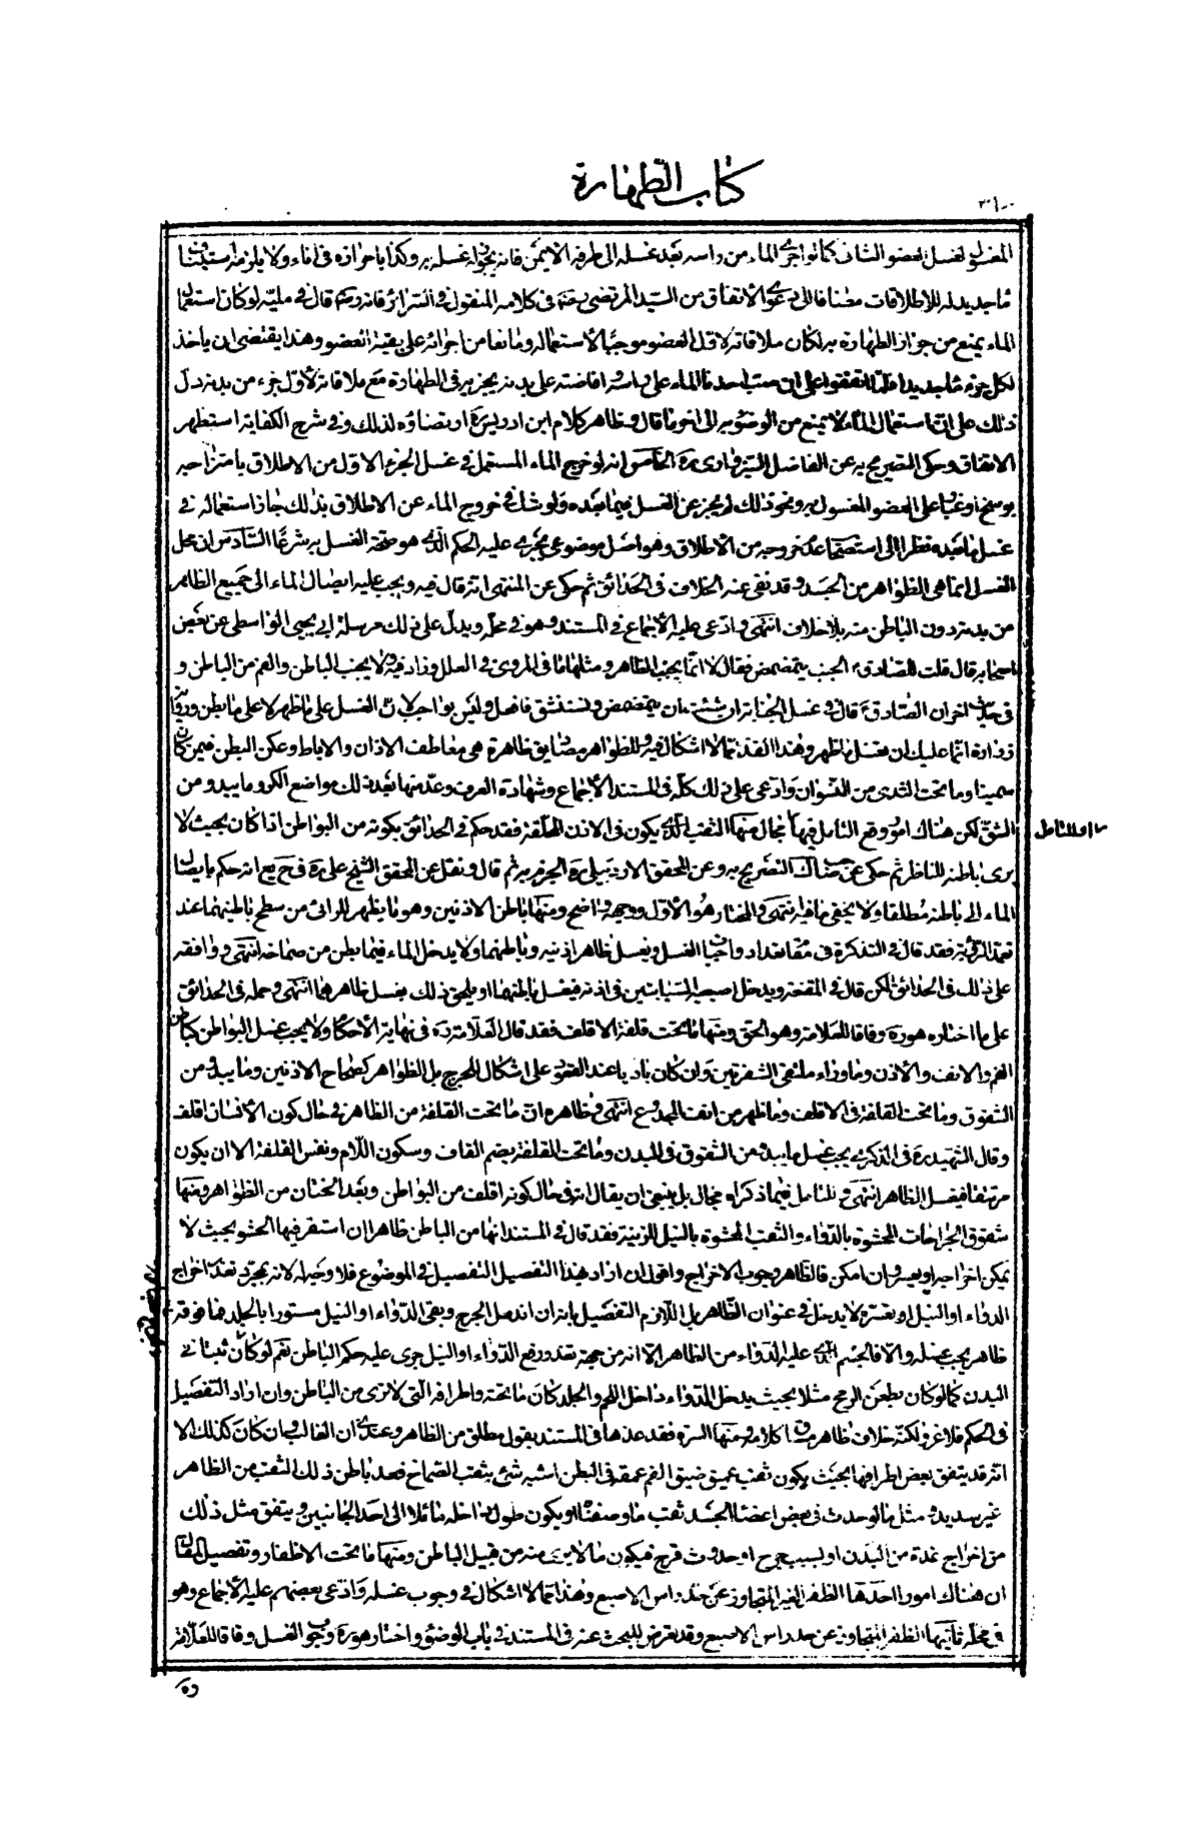 كتاب الطهارة
المغسول لغسل العضو الثانى كما لو اجرى الماء من راسه بعد غسله الى طرفه الايمن فانه يجوز غسله به وكذا باحرازه فى اناء ولا يلزمه استيناف
ماء جديد له للاطلاقات مضافا الى دعوى الاتفاق من السيد المرتضى رحمه فى كلامه المنقول فى السرائر فانه قال فى لو كان استعمال
الماء يمنع من جواز الطهارة به لكان ملاقاته لاقل العضو موجبا لاستعماله ومانعا من اجرائه على بقية العضو وهذا يقتضى ان ياخذ
لكل جزء ماء جديدا فلما اتفقوا على ان من صب احدنا الماء على راسه وافاضته على بدنه يجزيه فى الطهارة مع ملاقاته لاول جزء من بدنه دل
ذلك على ان استعمال الماء لا يمنع من الوضوء به الى اخر ما قال وظاهر كلام ابن ادريس ره ارتضاؤه لذلك وفى شرح الكفاية استظهر
الاتفاق وحكى التصريح به عن الفاضل السبزوارى ره الخامس انه لو خرج الماء المستعمل فى غسل الجزء الاول من الاطلاق بامتزاجه
بوسخ او غبار على العضو المغسول به ونحو ذلك لم يجز عن الغسل فيما بعده ولو شك فى خروج الماء عن الاطلاق بذلك جاز استعماله فى
غسل ما بعده نظرا الى استصحاب عدم خروجه من الاطلاق وهو اصل موضوعى يجرى عليه الحكم الذى هو صحة الغسل به شرعا السادس ان محل
الغسل انما هى الظواهر من الجسد وقد نفى عنه الخلاف فى الحدائق ثم حكى عن المنتهى انه قال فيه ويجب عليه ايصال الماء الى جميع الظاهر
من بدنه دون الباطن منه بلا خلاف انتهى وادعى عليه الاجماع فى المستند وهو فى محله ويدل على ذلك مرسلة ابى يحيى الواسطى عن بعض
اصحابه قال قلت للصادق ع الجنب يتمضمض فقال لا انما يجنب الظاهر ومثلها ما فى المروى فى العلل وزاد فيه ولا يجنب الباطن والفم من الباطن و
فى حديث اخر ان الصادق ع قال فى غسل الجنابة ان شئت ان تتمضمض وتستنشق فافعل وليس بواجب لان الغسل على ما ظهر لا على ما بطن ورواية
زرارة انما عليك ان تغسل ما ظهر وهذا القدر مما لا اشكال فيه وللظواهر مصاديق ظاهرة هى معاطف الاذان والاباط وعكن البطن فيمن كان
سمينا وما تحت الثدى من النسوان وادعى على ذلك كله فى المستند الاجماع وشهادة العرف وعد منها بعد ذلك مواضع الكر وما يبدو من
الشق لكن هناك امور وقع التامل فيها مجال منها الثقب الذى يكون فى الاذن للحلقة فقد حكم فى الحدائق بكونه من البواطن اذا كان بحيث لا
يرى باطنه للناظر ثم حكى عن صناك التصريح به وعن المحقق الاردبيلى ره الجزم به ثم قال ونقل عن المحقق الشيخ على ره فى ح يع انه حكم بايصال
الماء الى باطنه مطلقا ولا يخفى ما فيه انتهى والمختار هو الاول ووجهه واضح ومنها باطن الاذنين وهو ما يظهر للرائى من سطح باطنهما عند
تعمد الرؤية فقد قال فى التذكرة فى مقام تعداد واجبات الغسل ويغسل ظاهر اذنيه وباطنهما ولا يدخل الماء فيما بطن من صماخه انتهى ووافقه
على ذلك فى الحدائق لكن قال فى المقنعة ويدخل اصبعيه السبابتين فى اذنيه فيغسل باطنهما ويلحق ذلك بغسل ظاهرهما انتهى وحمله فى الحدائق
على ما اختاره هو ره وفاقا للعلامة وهو الحق ومنها ما تحت قلفة الاقلف فقد قال العلامة ره فى نهاية الاحكام ولا يجب غسل البواطن كباطن
الفم والانف والاذن وما وراء ملتقى الشفرتين وان كان باديا عند القعود على اشكال للحرج بل الظواهر كصماخ الاذنين وما يبدو من
الشقوق وما تحت القلفة فى الاقلف وما ظهر من انف المجدوع انتهى وظاهره ان ما تحت القلفة من الظاهر فى حال كون الانسان اقلف
وقال الشهيد ره فى الذكرى يجب غسل ما يبدو من الشقوق فى البدن وما تحت القلفة بضم القاف وسكون اللام ونفس القلفة الا ان يكون
مرتتقا فيغسل الظاهر انتهى وللتامل فيما ذكراه مجال بل ينبغى ان يقال انه فى حال كونه اقلف من البواطن وبعد الختان من الظواهر ومنها
شقوق الجراحات المحشوة بالدواء والثقب المحشوة بالنيل للزينة فقد قال فى المستند انها من الباطن ظاهر ان استقر فيها الحشو بحيث لا
يمكن اخراجه او يعسر وان امكن فالظاهر وجوب الاخراج واقول ان اراد بهذا التفصيل التفصيل فى الموضوع فلا وجه له لانه بمجرد تعذر اخراج
الدواء او النيل او تعسره لا يدخل فى عنوان الظاهر بل اللازم التفصيل بانه ان اندمل الجرح وبقى الدواء او النيل مستورا بالجلد فما فوقه
ظاهر يجب غسله والا فالجسم الذى عليه الدواء من الظاهر الا انه من جهة تعذر رفع الدواء او النيل جرى عليه حكم الباطن نعم لو كان ثبتا فى
البدن كما لو كان بطعن الرمح مثلا بحيث يدخل الدواء داخل اللحم والجلد كان ما تحته واطرافه التى لا ترى من الباطن وان اراد التفصيل
فى الحكم فلا غرو لكنه خلاف ظاهر سياق كلامه ومنها السرة فقد عدها فى المستند بقول مطلق من الظاهر وعندى ان الغالب وان كان كذلك الا
انه قد يتفق بعض اطرافها بحيث يكون ثقب عميق ضيق الفم عمقه فى البطن اشبه شئ بثقب الصماخ فعد باطن ذلك الثقب من الظاهر
غير سديد ومثل ما لو حدث فى بعض اعضاء الجسد ثقب ما وصفنا او يكون طول داخله مائلا الى احد الجانبين ويتفق مثل ذلك
من اخراج غدة من البدن او لسبب جرح او حدوث قرح فيكون ما لا يبدو منه من قبيل الباطن ومنها ما تحت الاظفار وتفصيل المقال
ان هناك امورا احدها الظفر الغير المتجاوز عن حد راس الاصبع وهذا مما لا اشكال فى وجوب غسله وادعى بعضهم عليه الاجماع وهو
فى محله ثانيها الظفر المتجاوز عن حد راس الاصبع وقد تعرض للبحث عنه فى المستند فى باب الوضوء واختار هو ره وجوب الغسل وفاقا للعلامة